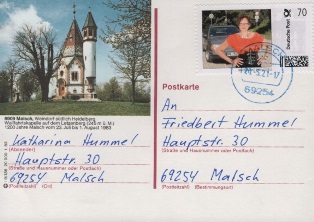 6909 Malsch, Weindorf südlich Heidelberg
Wallfahrtskapelle auf dem Letzenberg (345 m ü. M.)
1200 Jahre Malsch vom 23. Juli bis 1. August 1983
Katharina Hummel
(Absender)
Hauptstr. 30
(Straße und Hausnummer oder Postfach)
69254 Malsch
(Postleitzahl) (Ort)
70
Deutsche Post
69254
Postkarte
An
Friedbert Hummel
Hauptstr. 30
(Straße und Hausnummer oder Postfach)
69254 Malsch
(Postleitzahl) (Bestimmungsort)